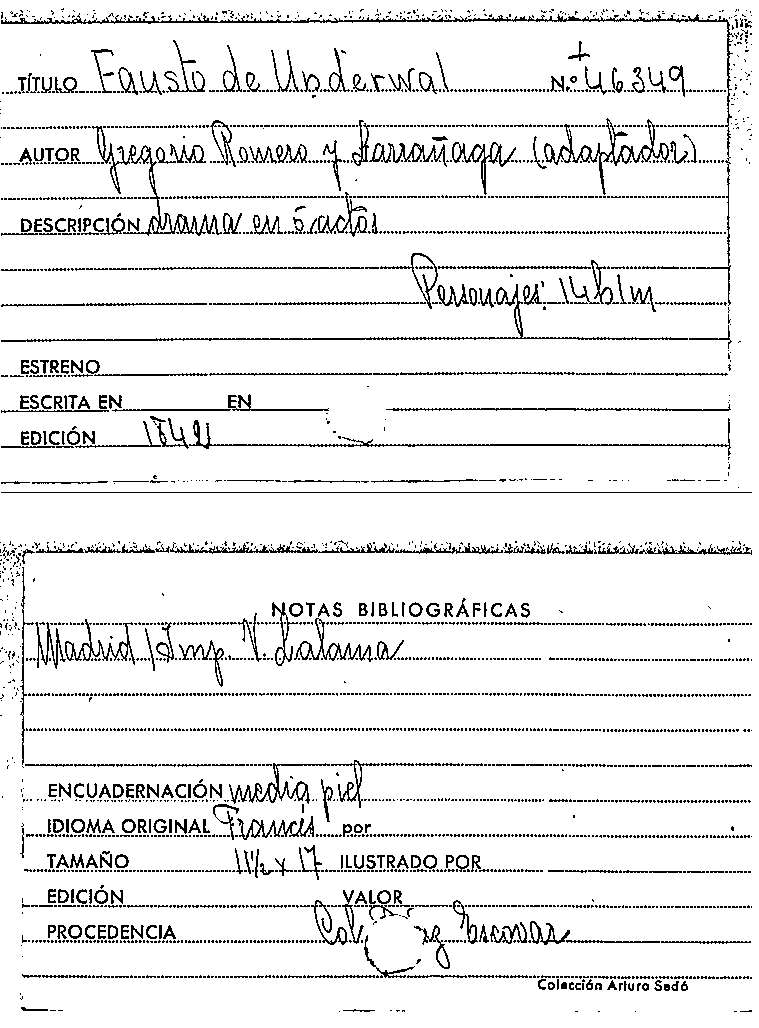 TÍTULO Fausto de Underwal N.º 46349
AUTOR Gregorio Romero y Larrañaga (adaptador)
DESCRIPCIÓN drama en 5 actos
Personajes: 14h 1m
ESTRENO
ESCRITA EN EN
EDICIÓN
NOTAS BIBLIOGRÁFICAS
Madrid / Imp. V. Lalama
ENCUADERNACIÓN media piel
IDIOMA ORIGINAL Francés por
TAMAÑO 11½ x 17 ILUSTRADO POR
EDICIÓN VALOR
PROCEDENCIA Col. Escovar
Colección Arturo Sedó